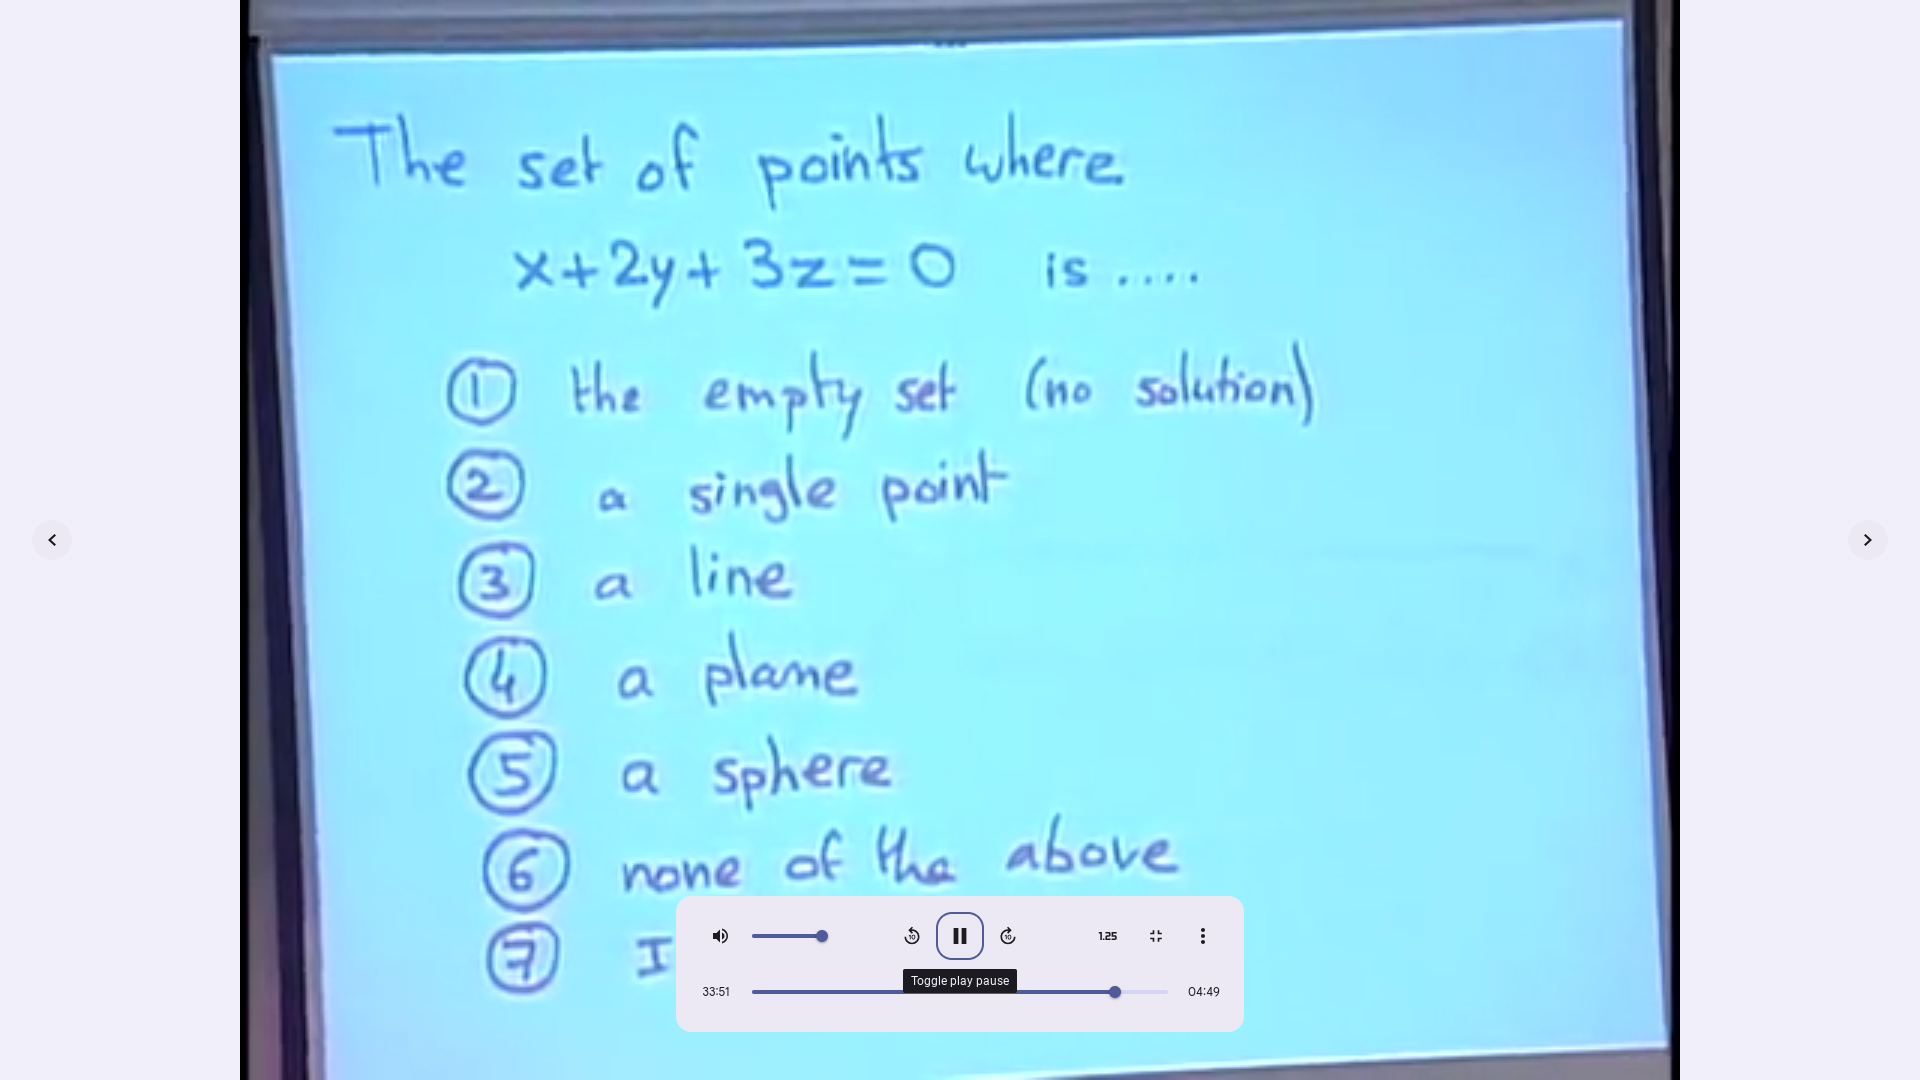 The set of points where
x+2y+3z=0 is ....
① the empty set (no solution)
② a single point
③ a line
④ a plane
⑤ a sphere
⑥ none of the above
⑦ I
10
10
1.25
Toggle play pause
33:51
04:49